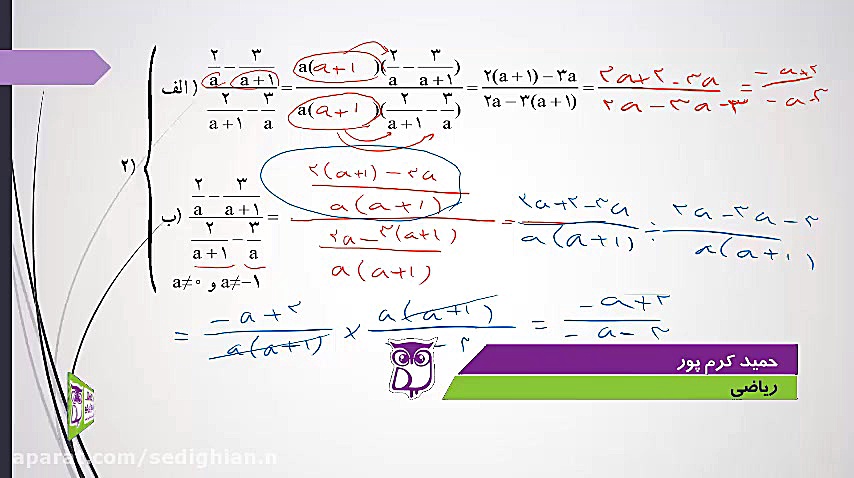 (۲
الف) (۲/a − ۳/(a+۱)) / (۲/(a+۱) − ۳/a) = a(a+۱)(۲/a − ۳/(a+۱)) / a(a+۱)(۲/(a+۱) − ۳/a) = (۲(a+۱) − ۳a) / (۲a − ۳(a+۱)) = (۲a+۲−۳a) / (۲a−۳a−۳) = (−a+۲) / (−a−۳)
ب) (۲/a − ۳/(a+۱)) / (۲/(a+۱) − ۳/a) = ((۲(a+۱) − ۳a) / a(a+۱)) / ((۲a − ۳(a+۱)) / a(a+۱)) = (۲a+۲−۳a) / a(a+۱) ÷ (۲a−۳a−۳) / a(a+۱)
a≠۰ و a≠−۱
= (−a+۲) / a(a+۱) × a(a+۱) / −۳ = (−a+۲) / (−a−۳)
حمید کرم پور
ریاضی
aparat.com/sedighian.n